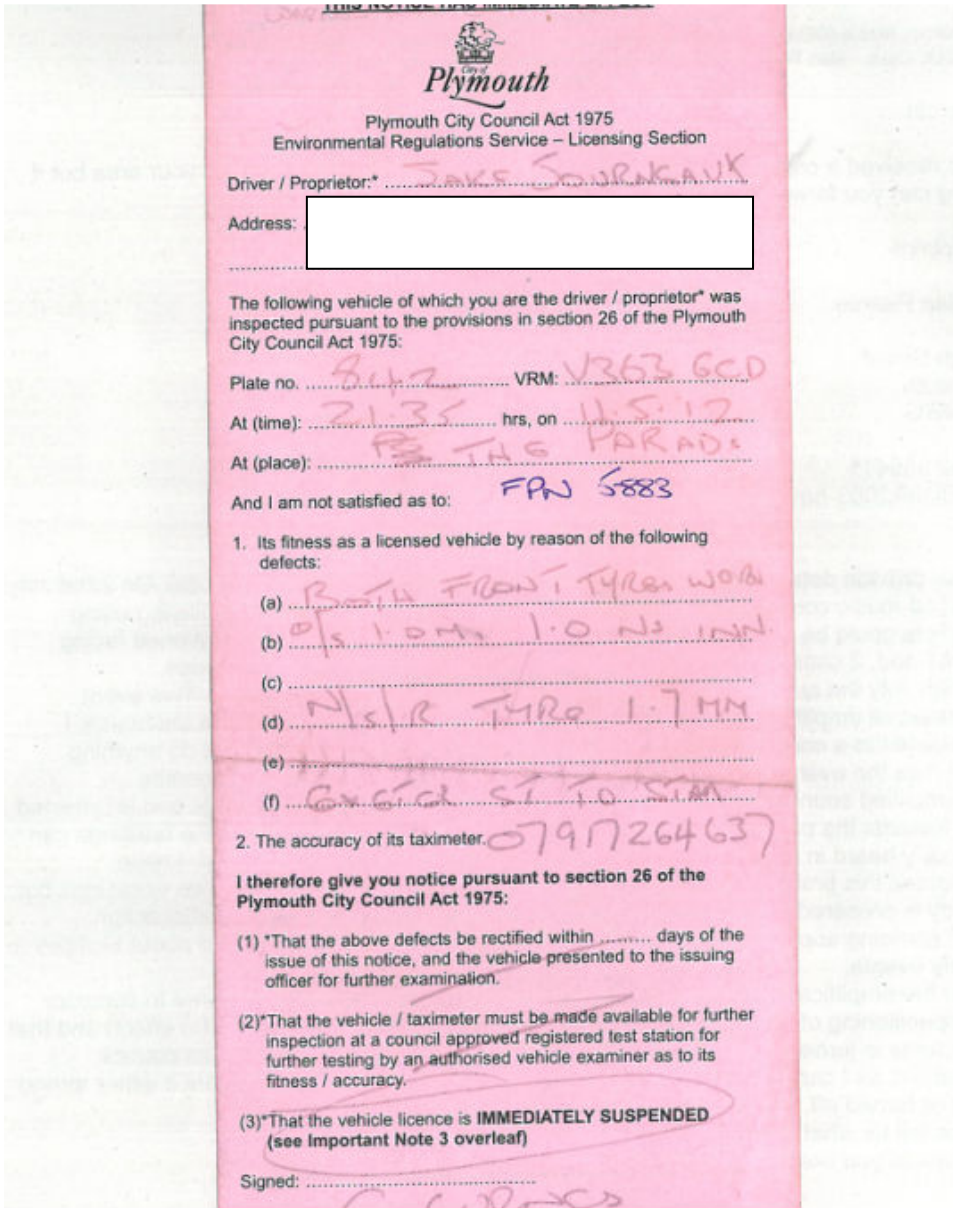 THIS NOTICE HAS IMMEDIATE EFFECT
City of
Plymouth
Plymouth City Council Act 1975
Environmental Regulations Service – Licensing Section
Driver / Proprietor:* JAKE
Address:
The following vehicle of which you are the driver / proprietor* was
inspected pursuant to the provisions in section 26 of the Plymouth
City Council Act 1975:
Plate no. 842 VRM: V363 GCD
At (time): 21.35 hrs, on 11.5.12
At (place): THE PARADE
And I am not satisfied as to: FPN 5883
1. Its fitness as a licensed vehicle by reason of the following
defects:
(a) BOTH FRONT TYRES WORN
(b) O/S 1.0MM 1.0 N/S INN
(c)
(d) N/S/R TYRE 1.7 MM
(e)
(f) EXETER ST TO
2. The accuracy of its taximeter. 07917264637
I therefore give you notice pursuant to section 26 of the
Plymouth City Council Act 1975:
(1) *That the above defects be rectified within ......... days of the
issue of this notice, and the vehicle presented to the issuing
officer for further examination.
(2)*That the vehicle / taximeter must be made available for further
inspection at a council approved registered test station for
further testing by an authorised vehicle examiner as to its
fitness / accuracy.
(3)*That the vehicle licence is IMMEDIATELY SUSPENDED
(see Important Note 3 overleaf)
Signed: